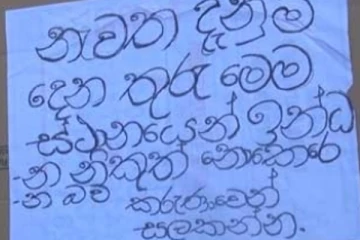 නැවත දැනුම්
දෙන තුරු මෙම
ස්ථානයෙන් ඉන්ධ
-න නිකුත් නොකෙරෙ
-න බව කරුණාවෙන්
සලකන්න.